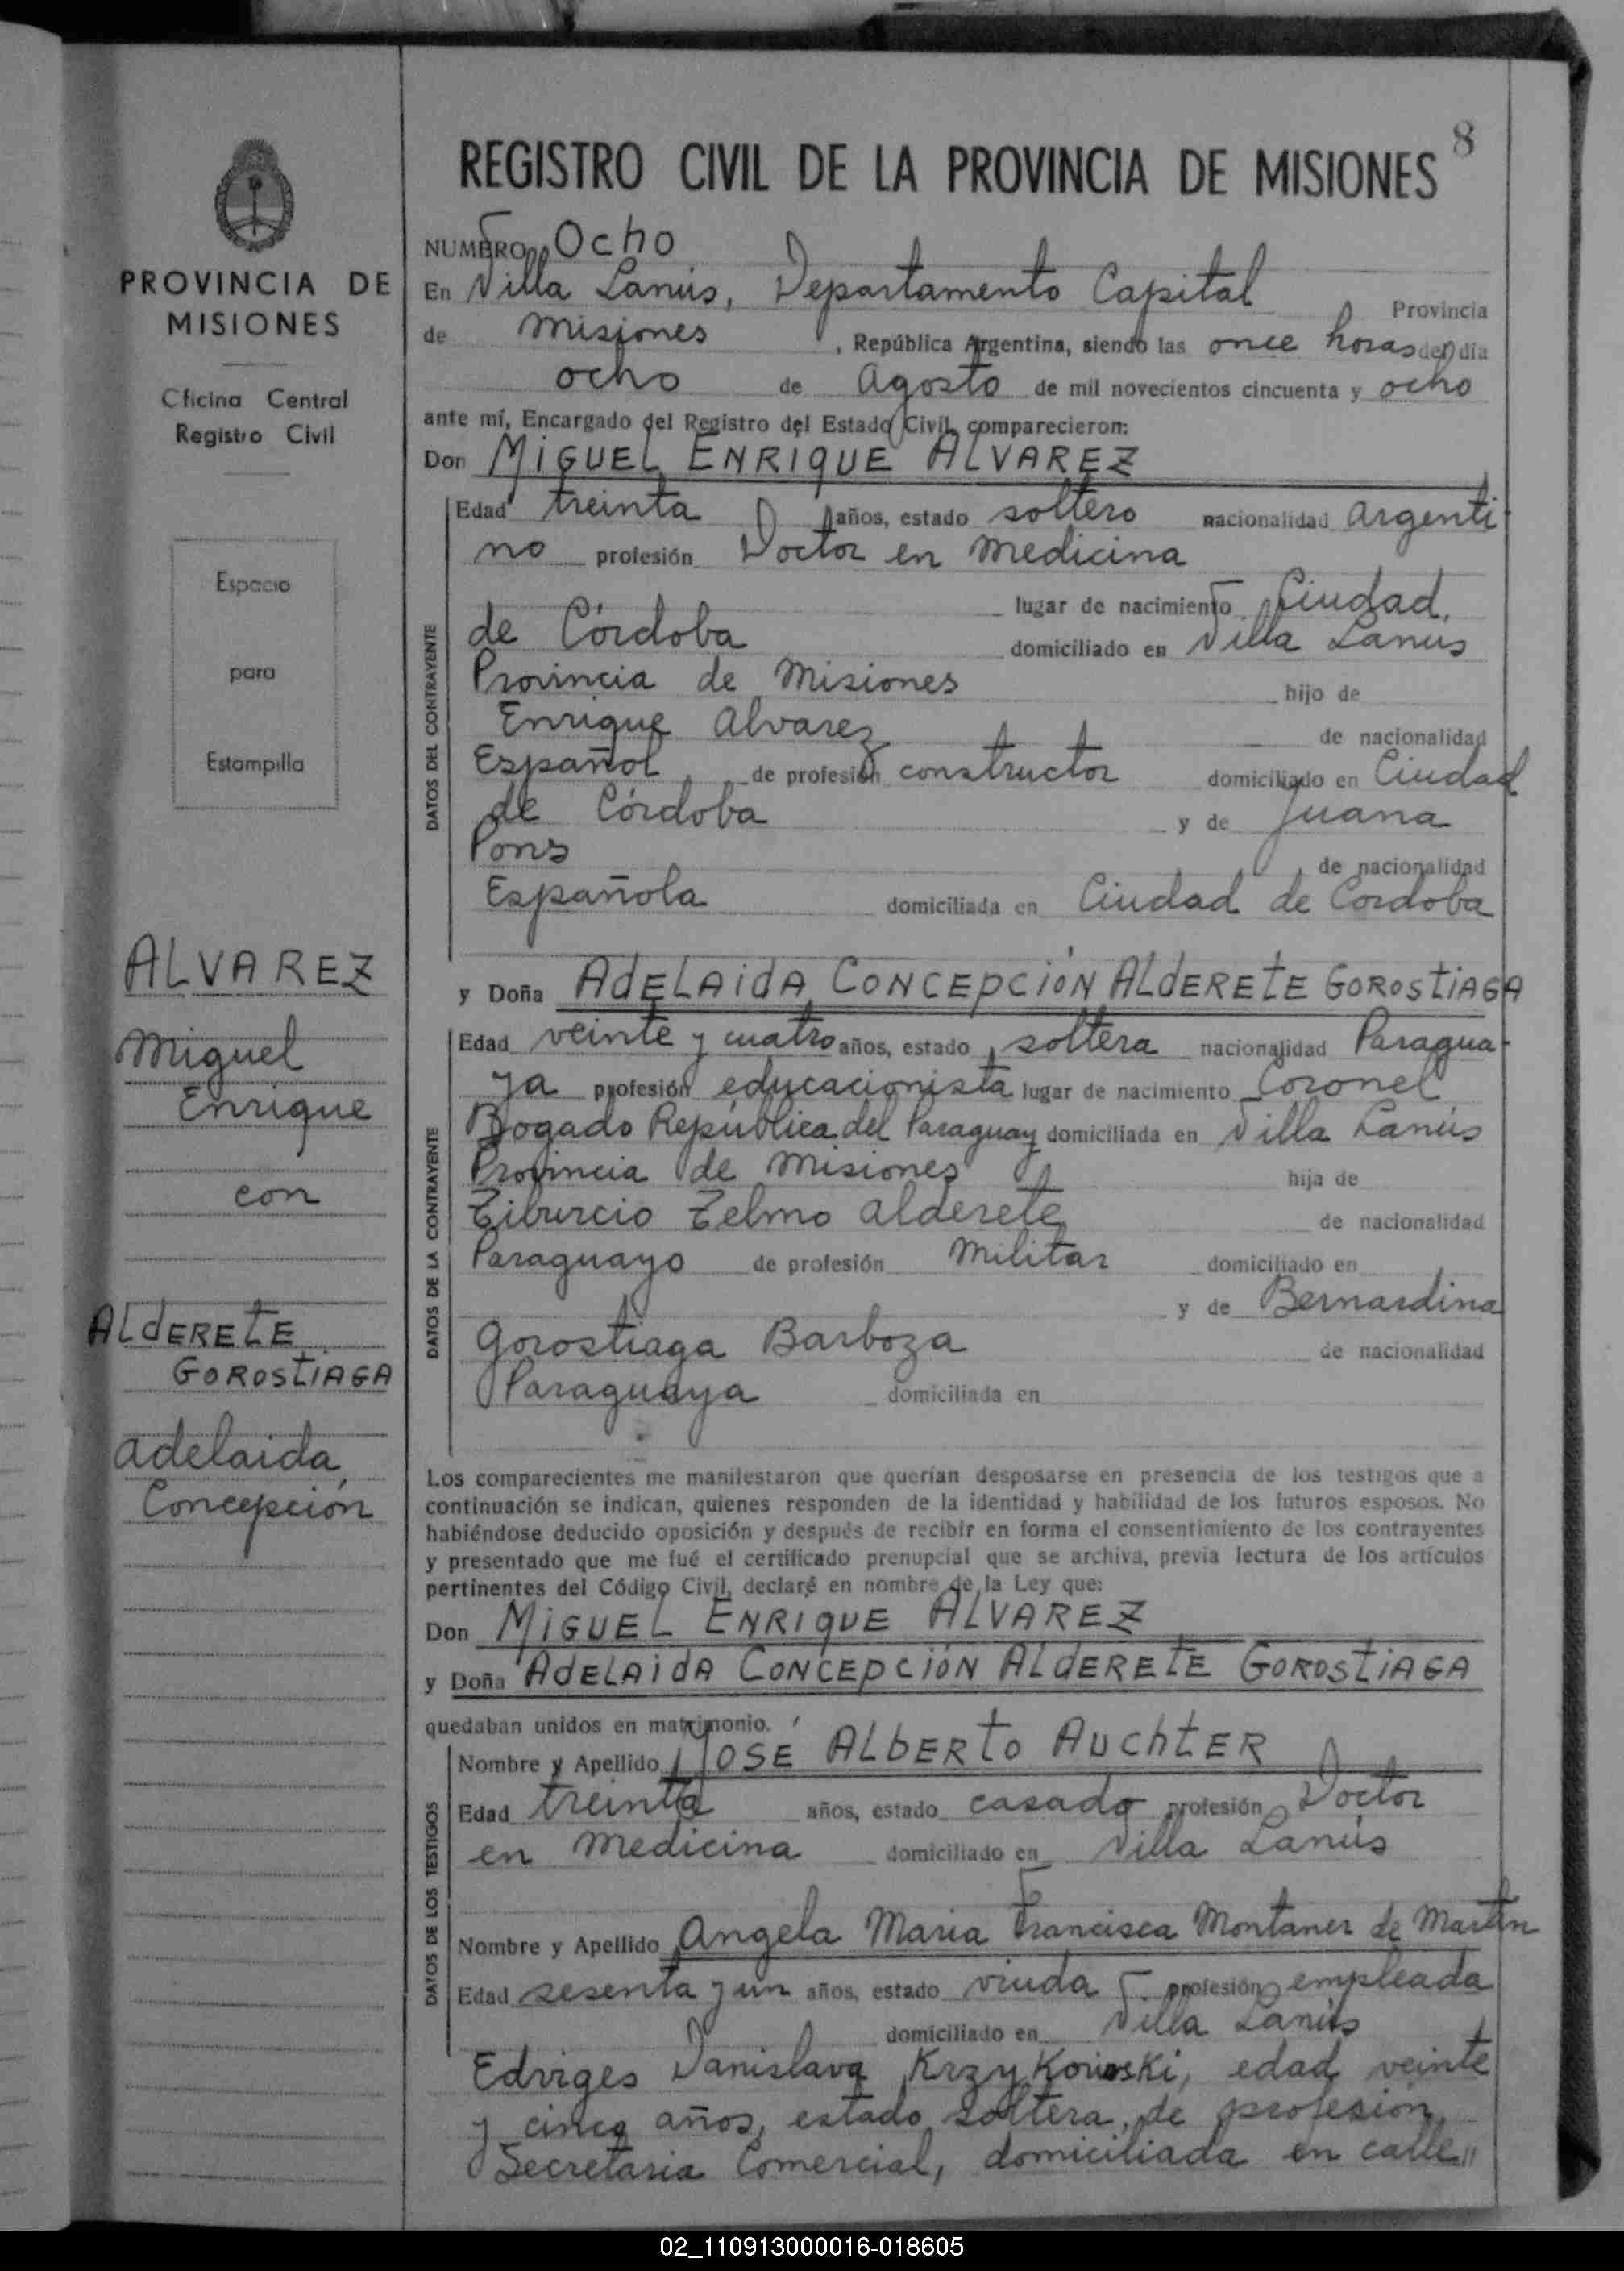 8
REGISTRO CIVIL DE LA PROVINCIA DE MISIONES
PROVINCIA DE
MISIONES
Oficina Central
Registro Civil
Espacio
para
Estampilla
ALVAREZ
Miguel
Enrique
con
ALDERETE
GOROSTIAGA
Adelaida
Concepción
NUMERO Ocho
En Villa Lanús, Departamento Capital Provincia
de Misiones, República Argentina, siendo las once horas del día
ocho de Agosto de mil novecientos cincuenta y ocho
ante mí, Encargado del Registro del Estado Civil, comparecieron:
Don MIGUEL ENRIQUE ALVAREZ
DATOS DEL CONTRAYENTE
Edad treinta años, estado soltero nacionalidad Argenti
no profesión Doctor en Medicina
lugar de nacimiento Ciudad
de Córdoba domiciliado en Villa Lanus
Provincia de Misiones hijo de
Enrique Alvarez de nacionalidad
Español de profesión constructor domiciliado en Ciudad
de Córdoba y de Juana
Pons de nacionalidad
Española domiciliada en Ciudad de Cordoba
y Doña ADELAIDA CONCEPCIÓN ALDERETE GOROSTIAGA
DATOS DE LA CONTRAYENTE
Edad veinte y cuatro años, estado soltera nacionalidad Paragua-
ya profesión educacionista lugar de nacimiento Coronel
Bogado República del Paraguay domiciliada en Villa Lanús
Provincia de Misiones hija de
Tiburcio Telmo Alderete de nacionalidad
Paraguayo de profesión Militar domiciliado en
y de Bernardina
Gorostiaga Barboza de nacionalidad
Paraguaya domiciliada en
Los comparecientes me manifestaron que querían desposarse en presencia de los testigos que a
continuación se indican, quienes responden de la identidad y habilidad de los futuros esposos. No
habiéndose deducido oposición y después de recibir en forma el consentimiento de los contrayentes
y presentado que me fué el certificado prenupcial que se archiva, previa lectura de los artículos
pertinentes del Código Civil, declaré en nombre de la Ley que:
Don MIGUEL ENRIQUE ALVAREZ
y Doña ADELAIDA CONCEPCIÓN ALDERETE GOROSTIAGA
quedaban unidos en matrimonio.
DATOS DE LOS TESTIGOS
Nombre y Apellido JOSÉ ALBERTO AUCHTER
Edad treinta años, estado casado profesión Doctor
en Medicina domiciliado en Villa Lanús
Nombre y Apellido Angela Maria Francisca Montaner de Martin
Edad sesenta y un años, estado viuda profesión empleada
domiciliado en Villa Lanús
Edviges Danislava Krzykowski, edad veinte
y cinco años, estado soltera, de profesión
Secretaria Comercial, domiciliada en calle
02_110913000016-018605